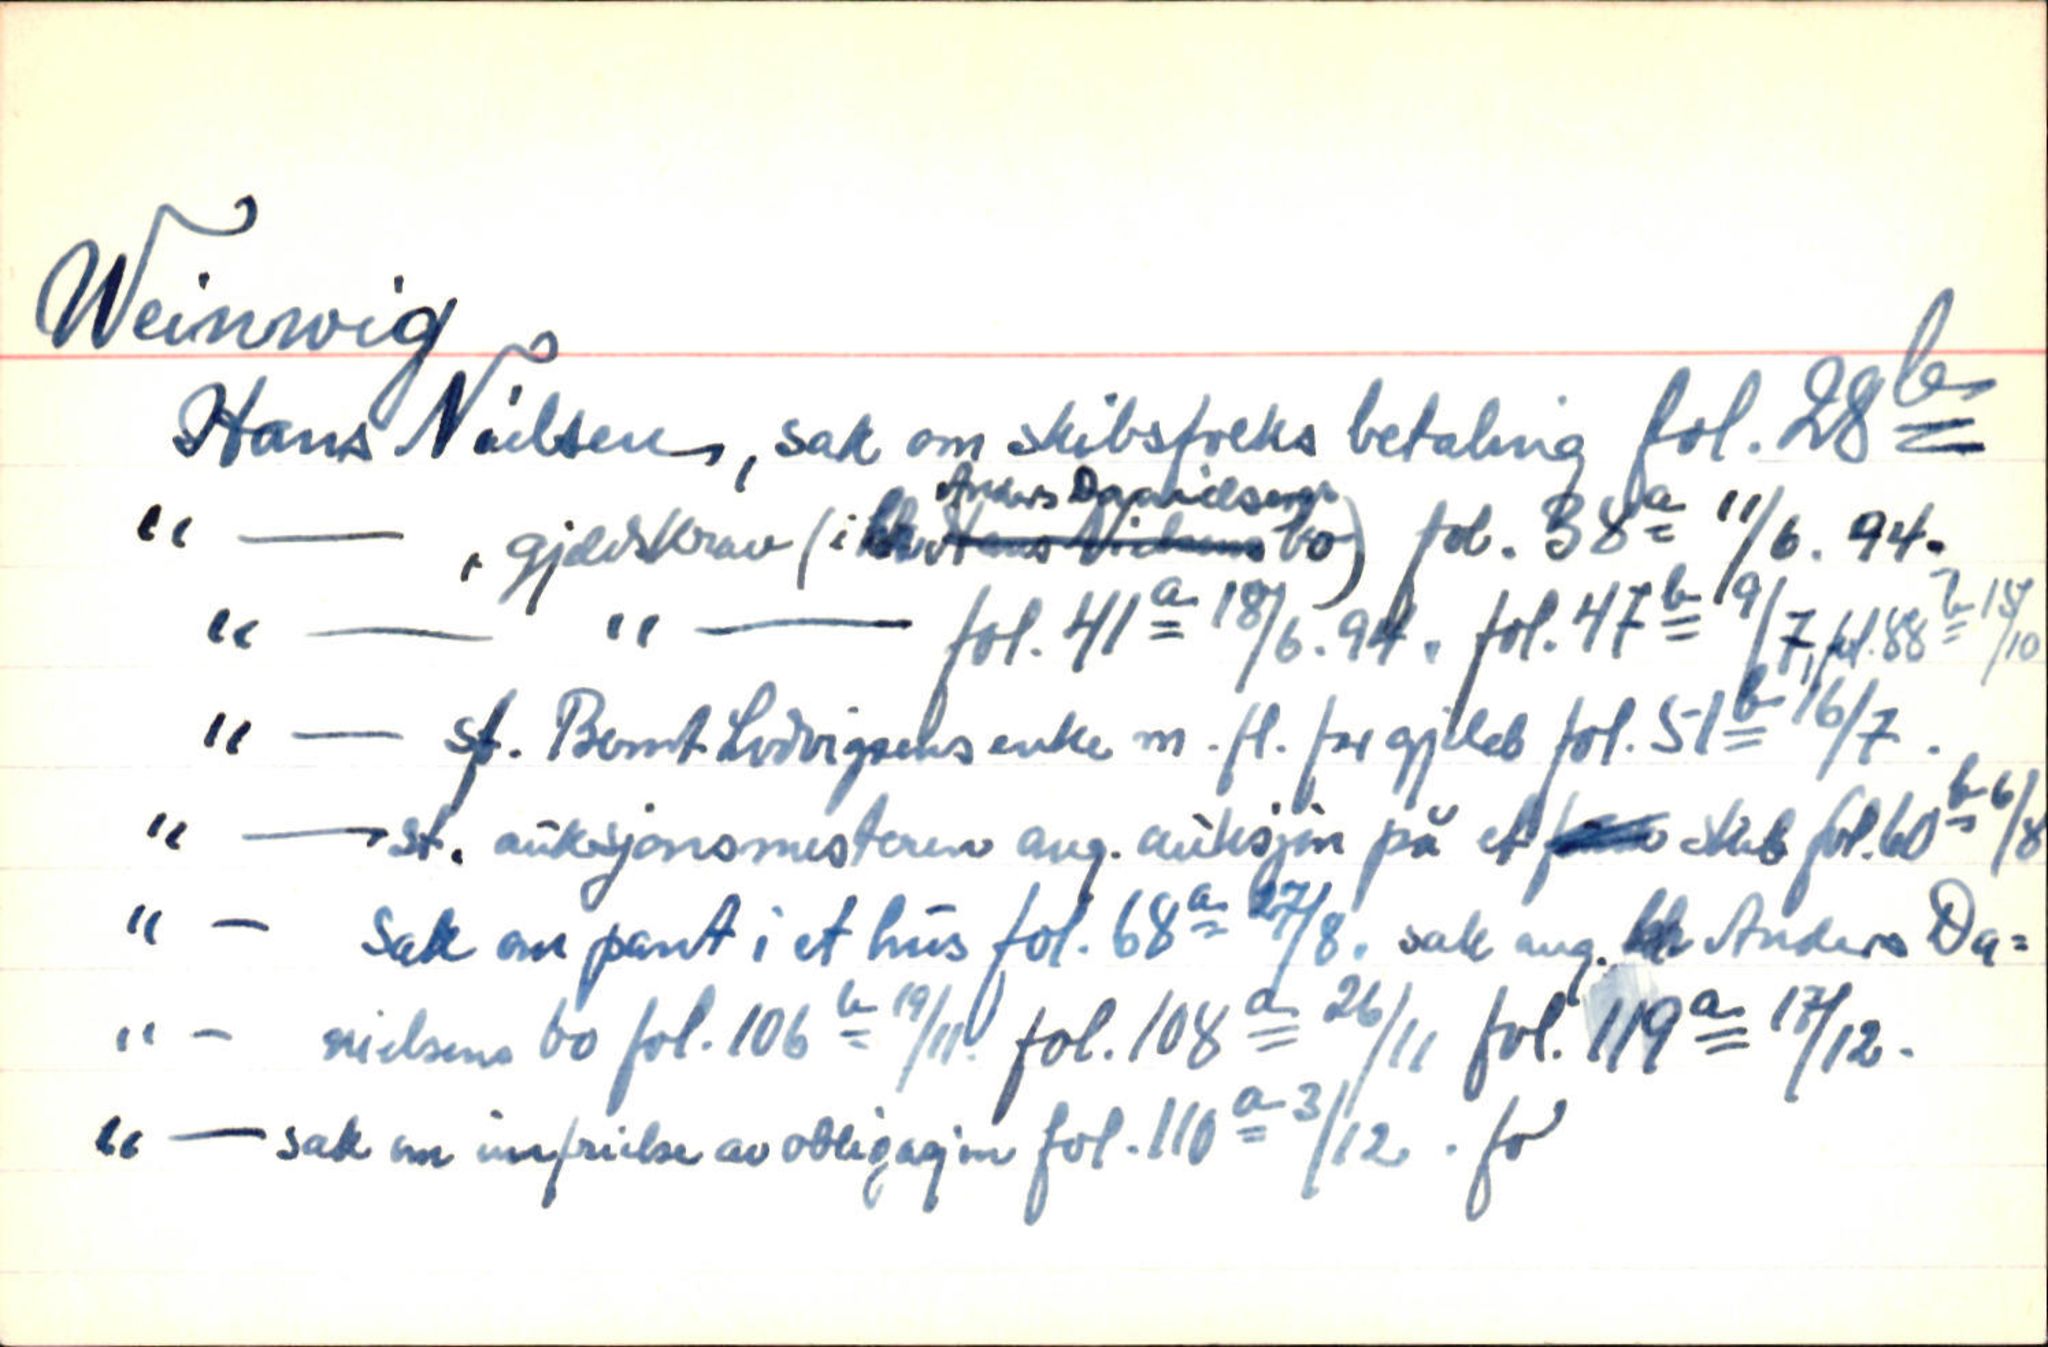 Weinwig
Hans Nielsen, sak om skibsfreks betaling fol. 28 b
" — , gjeldskrav (i Anders Danielsens bo) fol. 38 a 11/6. 94.
" — " — fol. 41 a 18/6. 94. fol. 47 b 9/7, fol. 88 b 15/10
" — st. Bernt Lodvigsens enke m. fl. for gjeld fol. 51 b 16/7.
" — st. auksjonsmesteren ang. auksjon på et skib fol. 60 b 6/8
" — Sak om pant i et hus fol. 68 a 27/8. sak ang. Anders Da=
" — nielsens bo fol. 106 b 19/11. fol. 108 a 26/11 fol. 119 a 17/12.
" — sak om innfrielse av obligasjon fol. 110 a 3/12. fo